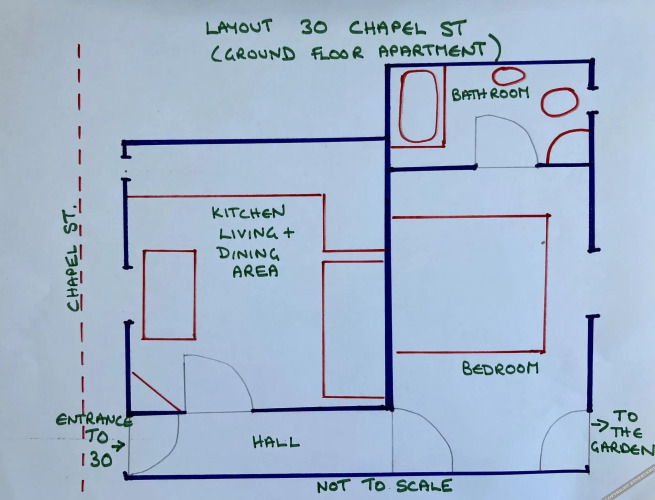 LAYOUT 30 CHAPEL ST
(GROUND FLOOR APARTMENT)
BATHROOM
CHAPEL ST.
KITCHEN
LIVING +
DINING
AREA
BEDROOM
ENTRANCE
TO
30 →
HALL
→ TO
THE
GARDEN
NOT TO SCALE